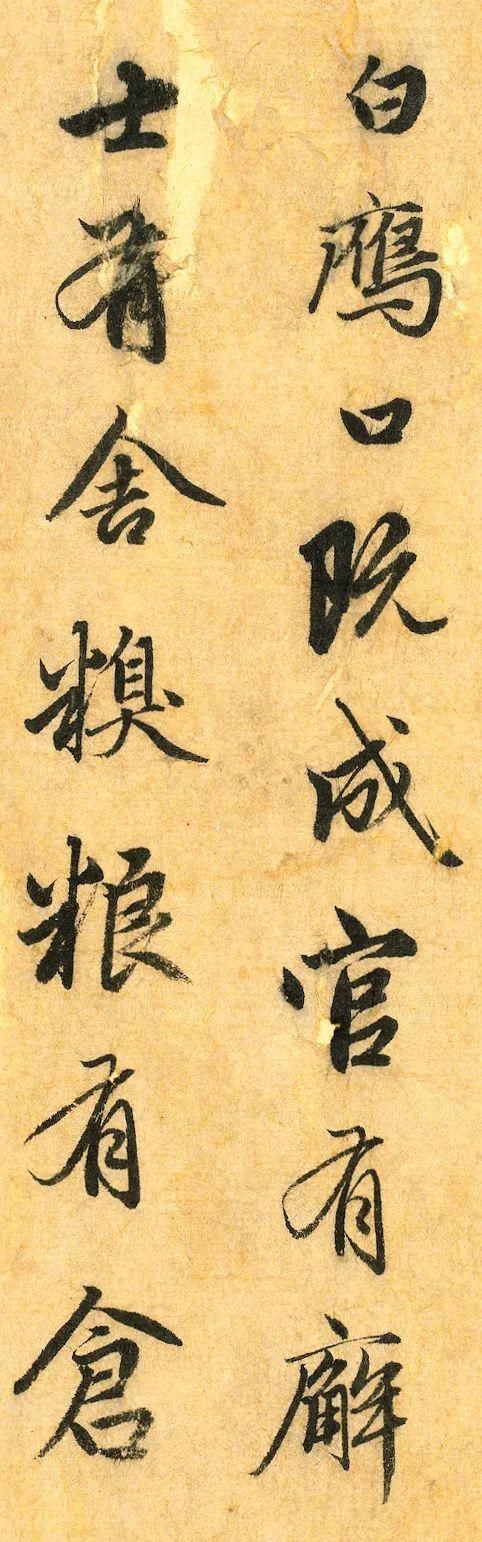 白鴈口既成官有廨
士有舍糗粮有倉